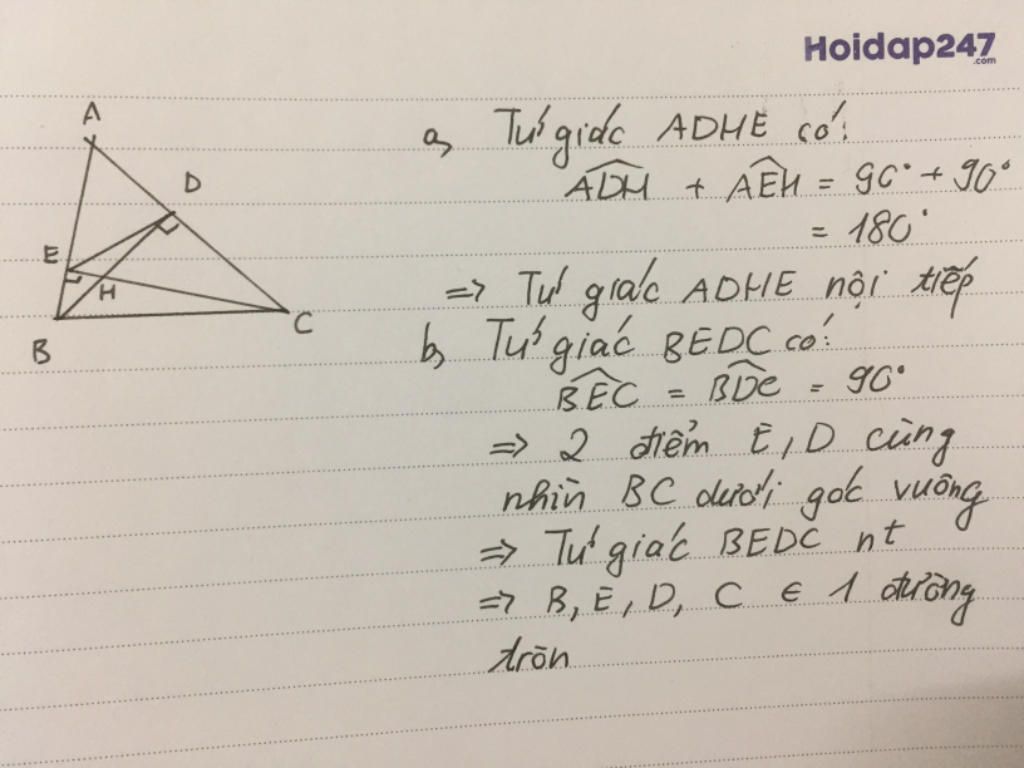 Hoidap247
.com
A
D
E
H
B
C
a, Tứ giác ADHE có:
ADH + AEH = 90° + 90°
= 180°
=> Tứ giác ADHE nội tiếp
b, Tứ giác BEDC có:
BEC = BDC = 90°
=> 2 điểm E, D cùng
nhìn BC dưới góc vuông
=> Tứ giác BEDC nt
=> B, E, D, C ∈ 1 đường
tròn